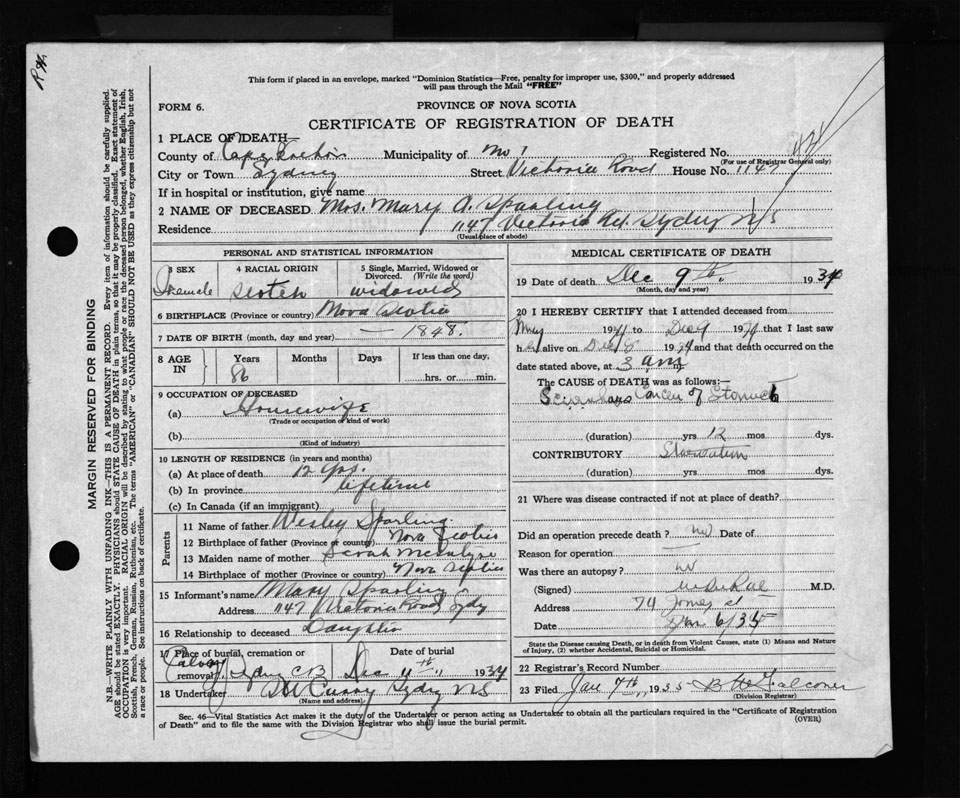 This form if placed in an envelope, marked "Dominion Statistics—Free, penalty for improper use, $300," and properly addressed
will pass through the Mail "FREE"
FORM 6.
PROVINCE OF NOVA SCOTIA
CERTIFICATE OF REGISTRATION OF DEATH
1 PLACE OF DEATH—
County of Cape Breton Municipality of No 1 Registered No.
(For use of Registrar General only)
City or Town Sydney Street Victoria Road House No. 1147
If in hospital or institution, give name
2 NAME OF DECEASED Mrs. Mary A. Sparling
Residence 1147 Victoria Rd. Sydney NS
(Usual place of abode)
PERSONAL AND STATISTICAL INFORMATION
3 SEX Female
4 RACIAL ORIGIN Scotch
5 Single, Married, Widowed or Divorced. (Write the word) widowed
6 BIRTHPLACE (Province or country) Nova Scotia
7 DATE OF BIRTH (month, day and year) — 1848.
8 AGE IN Years 86 Months Days If less than one day, hrs. or min.
9 OCCUPATION OF DECEASED
(a) Housewife
(Trade or occupation or kind of work)
(b)
(Kind of industry)
10 LENGTH OF RESIDENCE (in years and months)
(a) At place of death 12 yrs.
(b) In province lifetime
(c) In Canada (if an immigrant)
Parents
11 Name of father Wesley Sparling
12 Birthplace of father (Province or country) Nova Scotia
13 Maiden name of mother Sarah
14 Birthplace of mother (Province or country) Nova Scotia
15 Informant's name Mary Sparling
Address 1147 Victoria Road Sydy
16 Relationship to deceased Daughter
17 Place of burial, cremation or removal Sydney CB Date of burial Dec 11th, 1934
18 Undertaker Curry Sydney NS
(Name and address)
MEDICAL CERTIFICATE OF DEATH
19 Date of death Dec 9th. 1934
(Month, day and year)
20 I HEREBY CERTIFY that I attended deceased from
May 19 to Dec 9 1934 that I last saw
her alive on Dec 8 1934 and that death occurred on the
date stated above, at 3 am m.
The CAUSE OF DEATH was as follows:—
Scirrhous Cancer of Stomach
(duration) yrs 12 mos dys.
CONTRIBUTORY Starvation
(duration) yrs mos dys.
21 Where was disease contracted if not at place of death?
Did an operation precede death? no Date of
Reason for operation —
Was there an autopsy? no
(Signed) M.D.
Address 74 st
Date Jan 6/35
State the Disease causing Death, or in death from Violent Causes, state (1) Means and Nature
of Injury, (2) whether Accidental, Suicidal or Homicidal.
22 Registrar's Record Number
23 Filed Jan 7th, 1935 Falconer
(Division Registrar)
Sec. 46—Vital Statistics Act makes it the duty of the Undertaker or person acting as Undertaker to obtain all the particulars required in the "Certificate of Registration
of Death" and to file the same with the Division Registrar who shall issue the burial permit.
(OVER)
MARGIN RESERVED FOR BINDING
N.B.—WRITE PLAINLY WITH UNFADING INK—THIS IS A PERMANENT RECORD. Every item of information should be carefully supplied.
AGE should be stated EXACTLY. PHYSICIANS should STATE CAUSE OF DEATH in plain terms, so that it may be properly classified. Exact statement of
OCCUPATION is very important. RACIAL ORIGIN will be described by stating to what people or race the deceased person belonged, whether English, Irish,
Scottish, French, German, Russian, Ruthenian, etc. The terms "AMERICAN" or "CANADIAN" SHOULD NOT BE USED as they express citizenship but not
a race or people. See instructions on back of certificate.